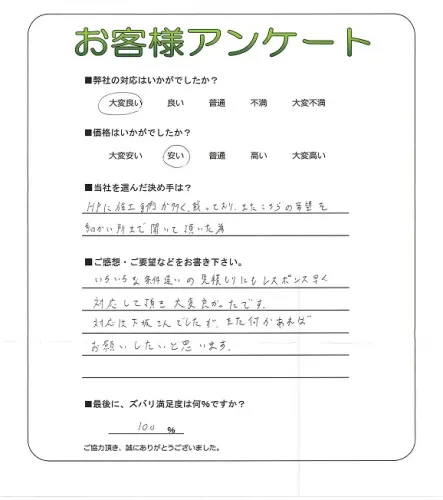 お客様アンケート
■弊社の対応はいかがでしたか？
大変良い 良い 普通 不満 大変不満
■価格はいかがでしたか？
大変安い 安い 普通 高い 大変高い
■当社を選んだ決め手は？
HPに施工事例が多く、載っており、またこちらの希望を
細かい所まで聞いて頂いた為
■ご感想・ご要望などをお書き下さい。
いろいろな条件違いの見積もりにもレスポンス早く
対応して頂き大変良かったです。
対応は下坂さんでしたが、また何かあれば
お願いしたいと思います。
■最後に、ズバリ満足度は何%ですか？
100 %
ご協力頂き、誠にありがとうございました。